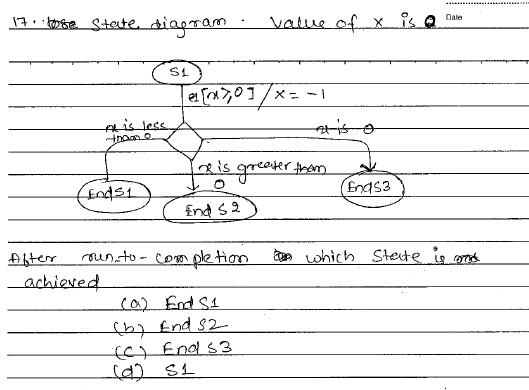 17. State diagram. Value of x is 0 Date
S1
e1[x≥0] / x = -1
x is less than 0
x is 0
x is greater than 0
End S1
End S2
End S3
After run-to-completion which State is
achieved
(a) End S1
(b) End S2
(c) End S3
(d) S1